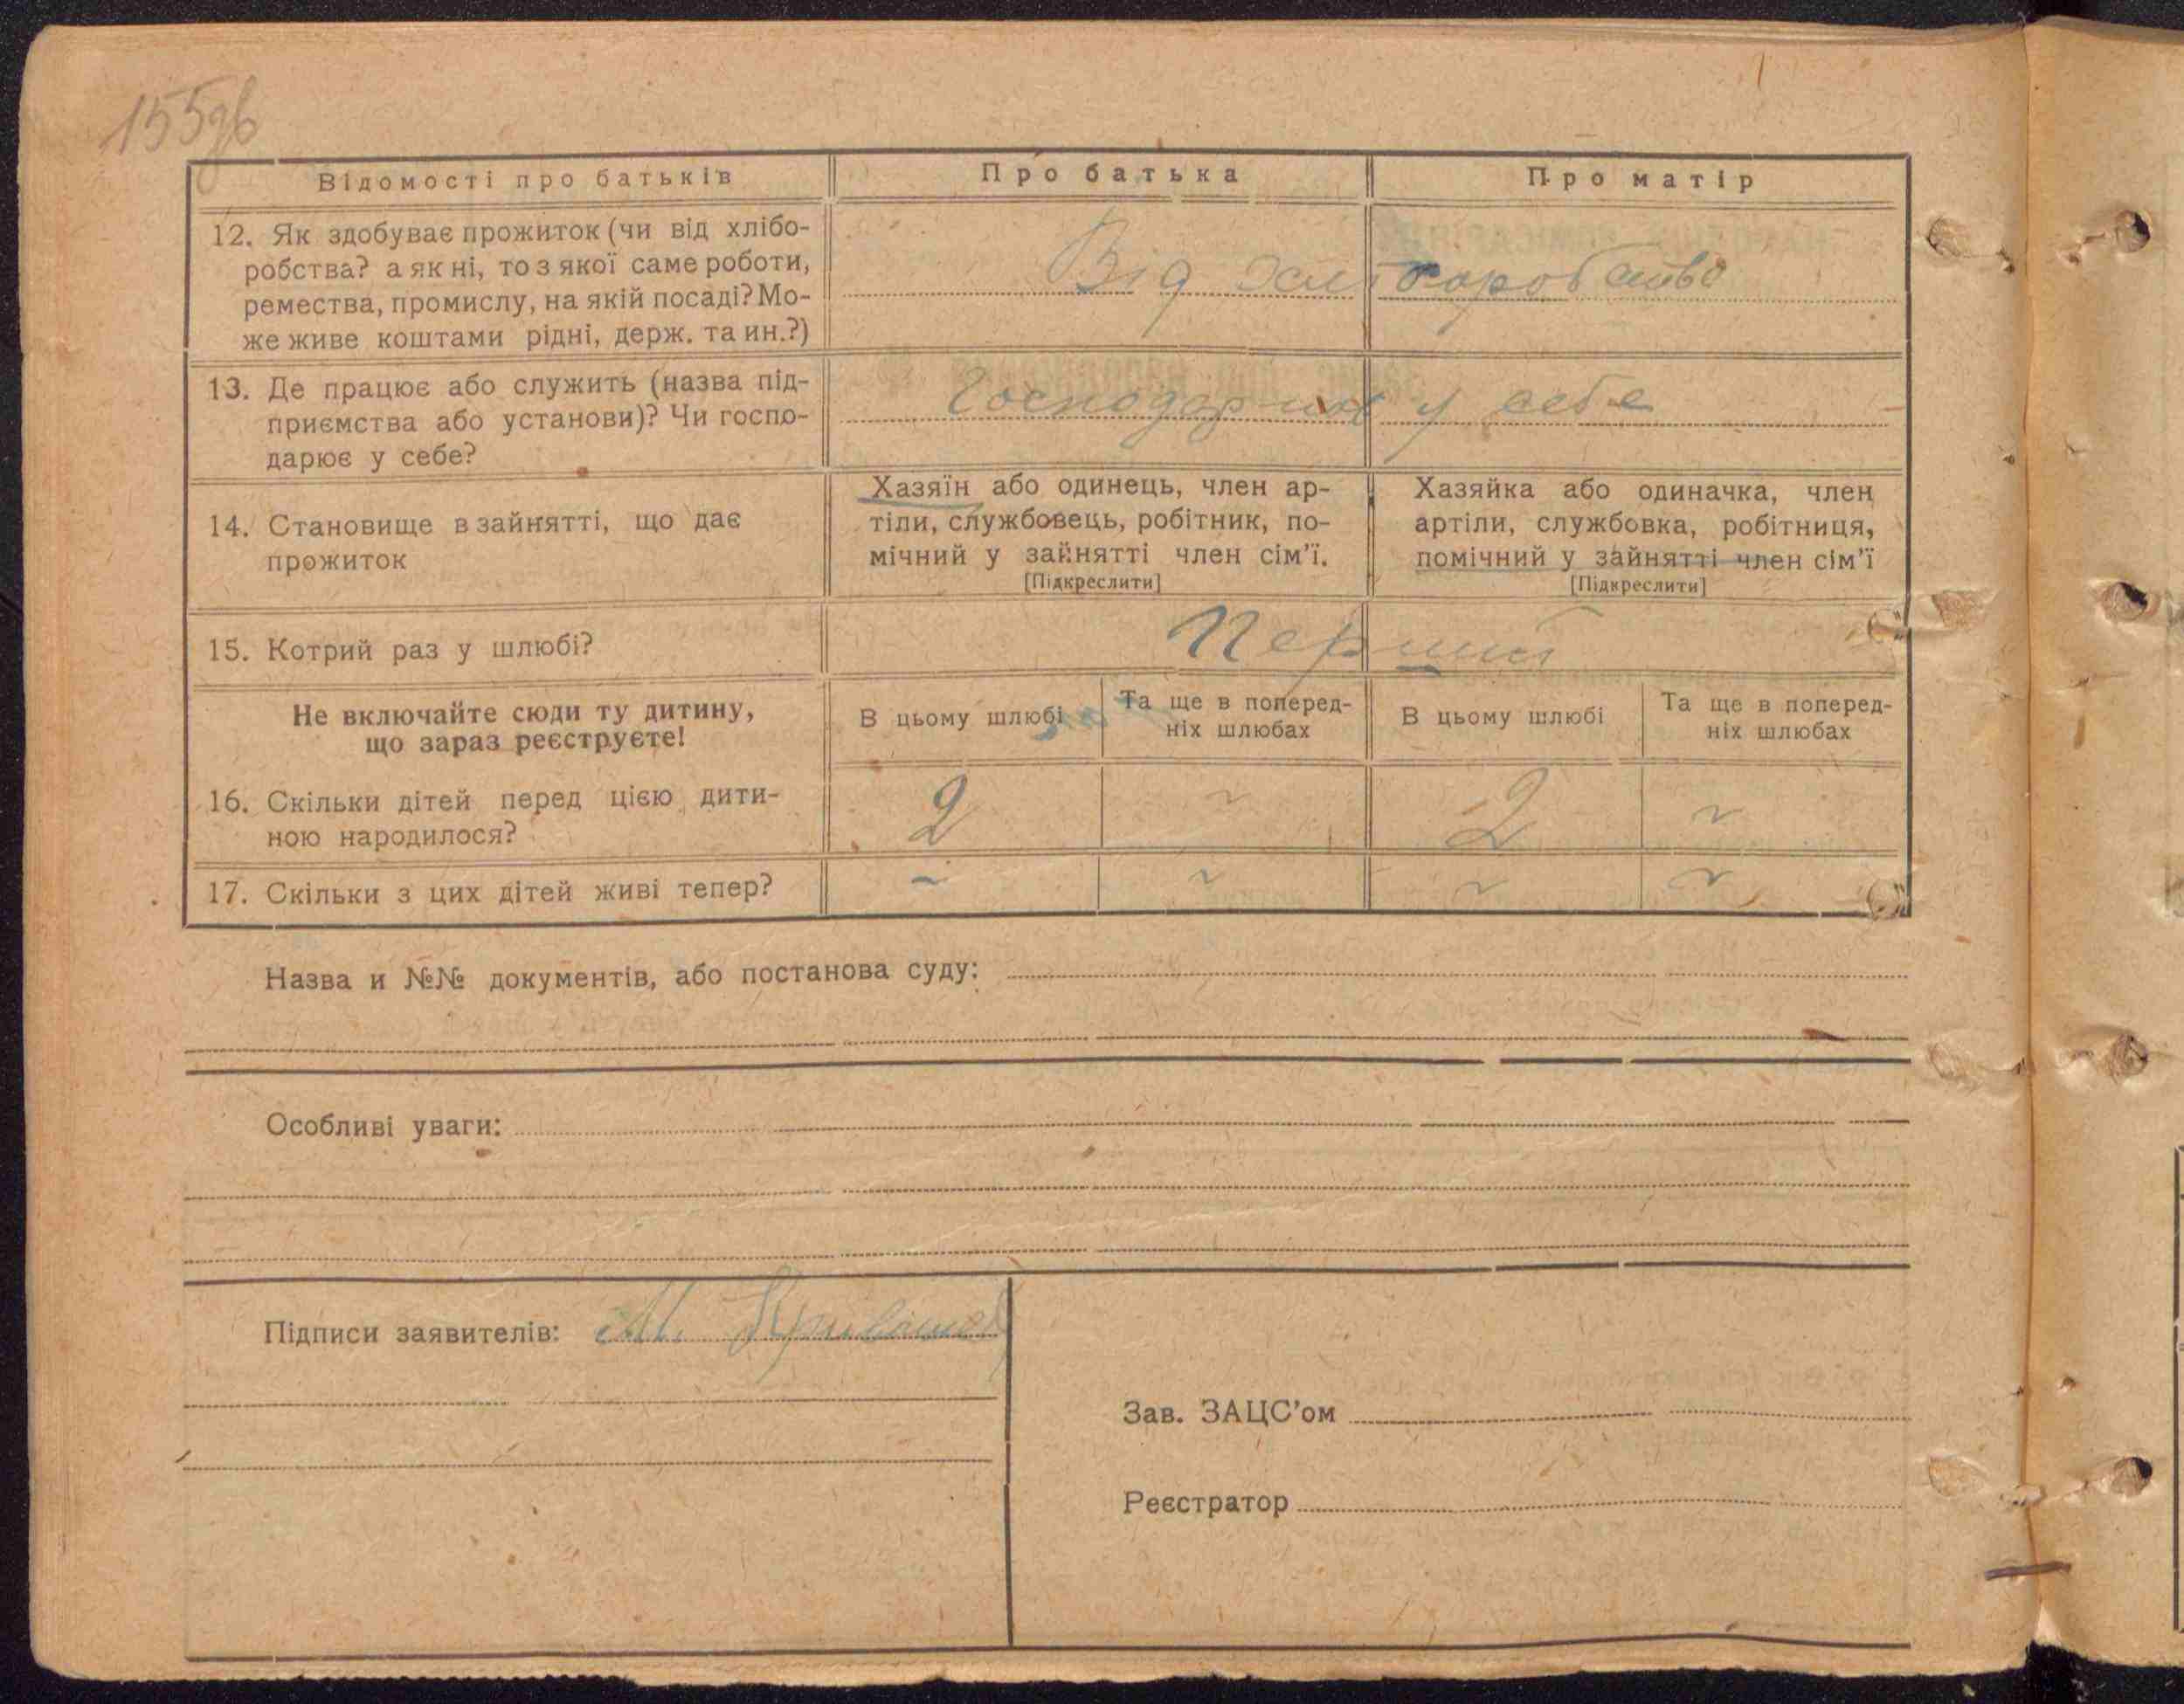 155зв
Відомості про батьків
Про батька
Про матір
12. Як здобуває прожиток (чи від хлібо-
робства? а як ні, то з якої саме роботи,
ремества, промислу, на якій посаді? Мо-
же живе коштами рідні, держ. та ин.?)
Від хліборобства
13. Де працює або служить (назва під-
приємства або установи)? Чи госпо-
дарює у себе?
у себе
14. Становище в зайнятті, що дає
прожиток
Хазяїн або одинець, член ар-
тіли, службовець, робітник, по-
мічний у зайнятті член сім'ї.
[Підкреслити]
Хазяйка або одиначка, член
артіли, службовка, робітниця,
помічний у зайнятті член сім'ї
[Підкреслити]
15. Котрий раз у шлюбі?
Перший
Не включайте сюди ту дитину,
що зараз реєструєте!
В цьому шлюбі
Та ще в поперед-
ніх шлюбах
В цьому шлюбі
Та ще в поперед-
ніх шлюбах
16. Скільки дітей перед цією дити-
ною народилося?
2 ~ 2 ~
17. Скільки з цих дітей живі тепер?
~ ~ ~ ~
Назва и №№ документів, або постанова суду:
Особливі уваги:
Підписи заявителів: М.
Зав. ЗАЦС'ом
Реєстратор